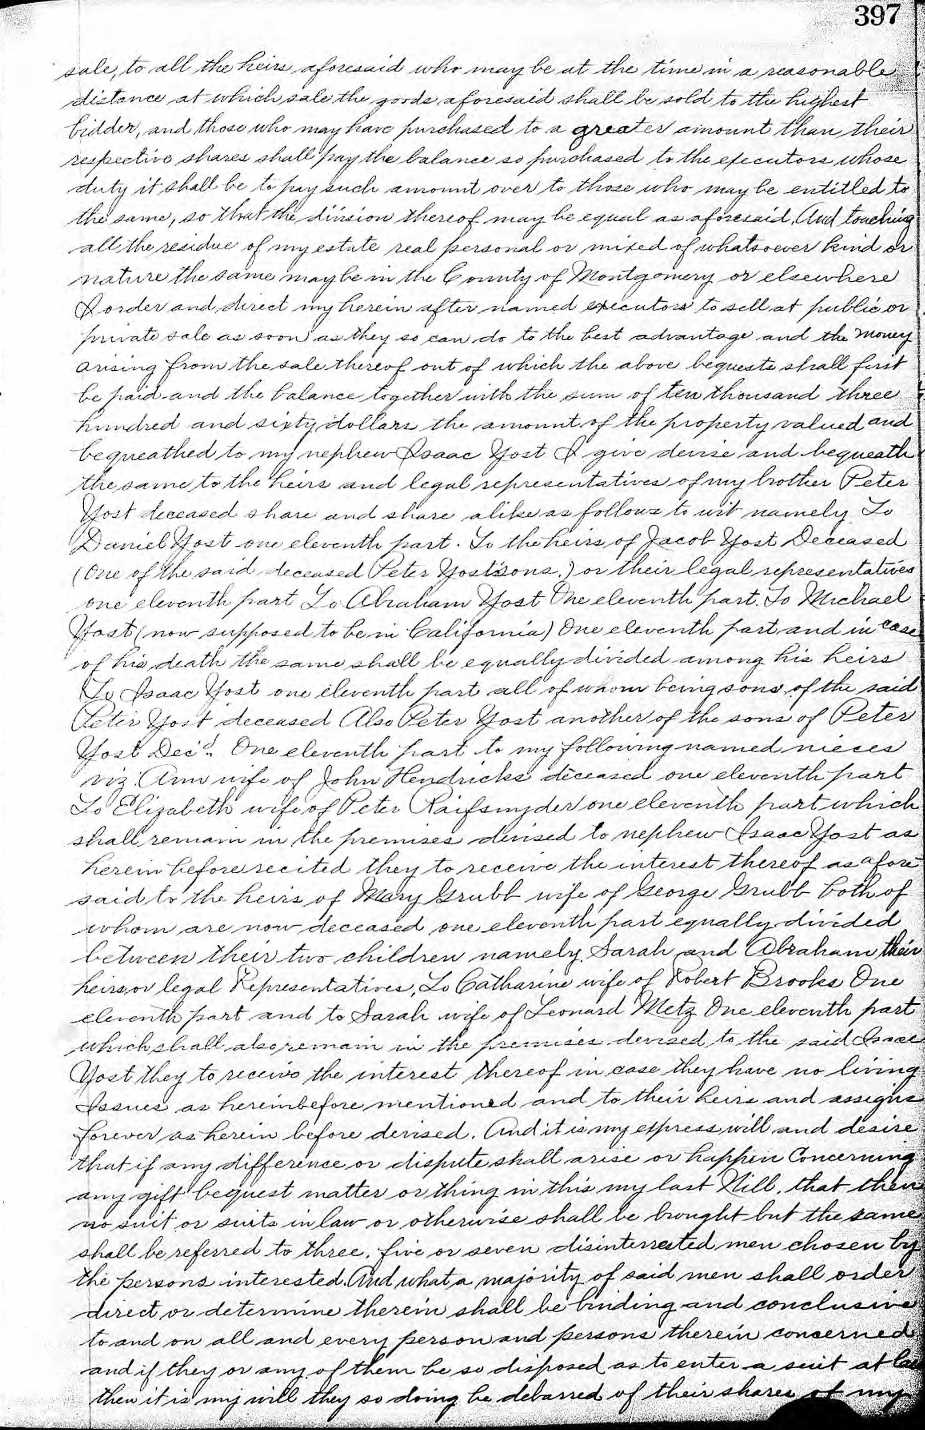 397
sale, to all the heirs aforesaid who may be at the time in a reasonable
distance at which sale the goods aforesaid shall be sold to the highest
bidder, and those who may have purchased to a greater amount than their
respective shares shall pay the balance so purchased to the executors whose
duty it shall be to pay such amount over to those who may be entitled to
the same, so that the division thereof may be equal as aforesaid. And touching
all the residue of my estate real personal or mixed of whatsoever kind or
nature the same may be in the County of Montgomery or elsewhere
I order and direct my herein after named executors to sell at public or
private sale as soon as they so can do to the best advantage and the money
arising from the sale thereof out of which the above bequests shall first
be paid and the balance together with the sum of ten thousand three
hundred and sixty dollars the amount of the property valued and
bequeathed to my nephew Isaac Yost I give devise and bequeath
the same to the heirs and legal representatives of my brother Peter
Yost deceased share and share alike as follows to wit namely To
Daniel Yost one eleventh part. To the heirs of Jacob Yost Deceased
(One of the said deceased Peter Yost's sons.) or their legal representatives
one eleventh part To Abraham Yost One eleventh part. To Michael
Yost (now supposed to be in California) One eleventh part and in case
of his death the same shall be equally divided among his heirs
To Isaac Yost one eleventh part all of whom being sons of the said
Peter Yost deceased Also Peter Yost another of the sons of Peter
Yost Decd. One eleventh part to my following named nieces
viz. Ann wife of John Hendricks deceased one eleventh part
To Elizabeth wife of Peter Raifsnyder one eleventh part which
shall remain in the premises devised to nephew Isaac Yost as
herein before recited they to receive the interest thereof as afore
said to the heirs of Mary Grubb wife of George Grubb both of
whom are now deceased one eleventh part equally divided
between their two children namely Sarah and Abraham their
heirs or legal Representatives, To Catharine wife of Robert Brooks One
eleventh part and to Sarah wife of Leonard Metz One eleventh part
which shall also remain in the premises devised to the said Isaac
Yost they to receive the interest thereof in case they have no living
Issues as hereinbefore mentioned and to their heirs and assigns
forever as herein before devised. And it is my express will and desire
that if any difference or dispute shall arise or happen Concerning
any gift bequest matter or thing in this my last Will. that then
no suit or suits in law or otherwise shall be brought but the same
shall be referred to three, five or seven disinterested men chosen by
the persons interested. And what a majority of said men shall order
direct or determine therein shall be binding and conclusive
to and on all and every person and persons therein concerned
and if they or any of them be so disposed as to enter a suit at law
then it is my will they so doing be debarred of their shares of my